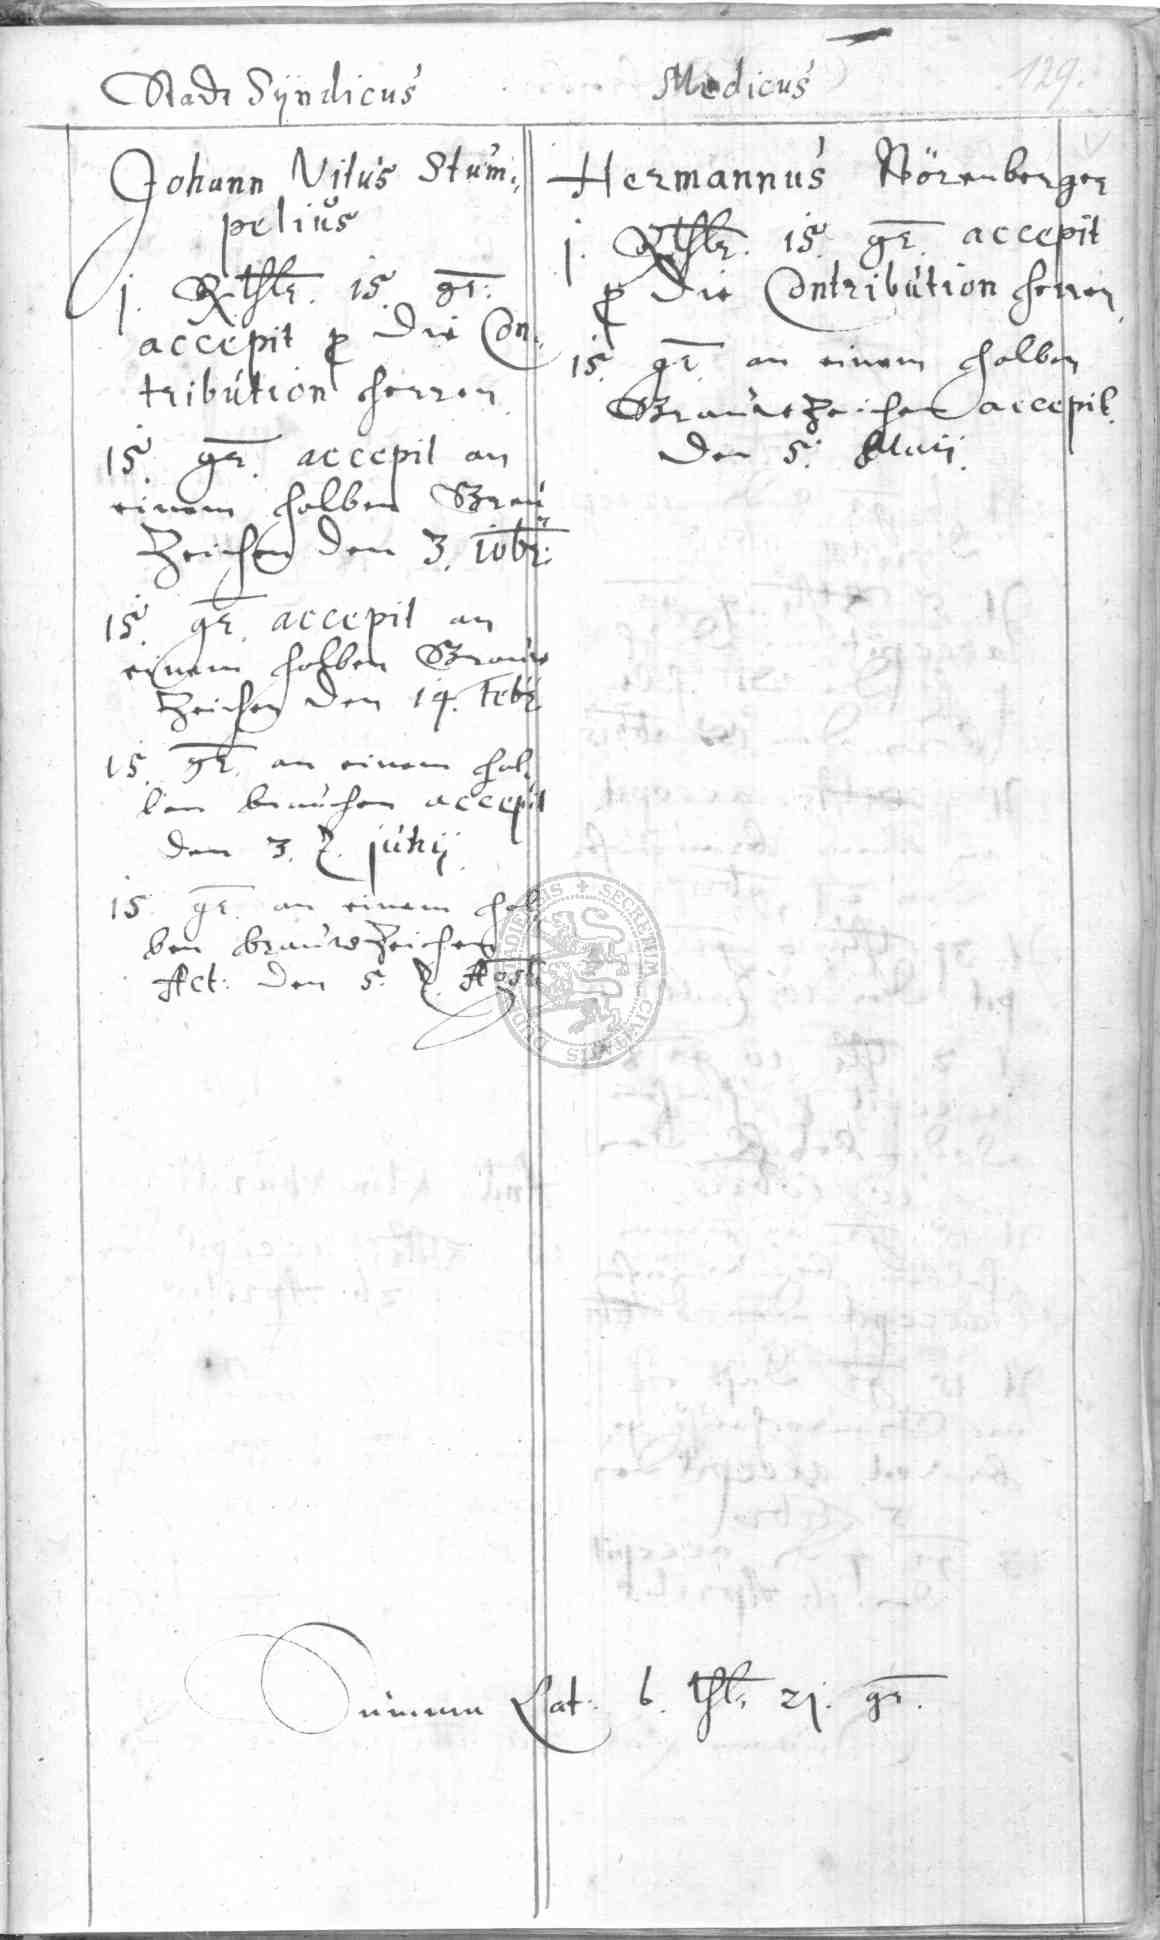 129.
Stadt Syndicus
Johann Vitus Stum-
pelius
j. Rthlr. 15 gr.
accepit p die Con-
tribution herren
15. gr. accepit an
einem halben Brau
Zeichen den 3. 10br.
15. gr. accepit an
einem halben Brauw
Zeichen den 14. Febr
15. gr. an einem hal-
ben brauchen accepit
den 3. julij
15. gr. an einem hal-
ben brauwZeichen
Act: den 5. Agsti
Medicus
Hermannus Nörenberger
j. Rthlr. 15. gr. accepit
p die Contribution herren
15. gr. an einem halben
BrauweZeichen accepit.
den 5. Maij.
Summa Lat. 6. thlr. 21. gr.
SECRETUM CIVITATIS